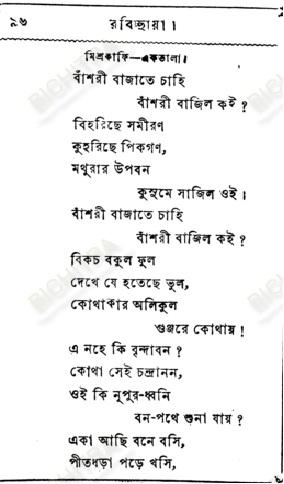 ৯৬ রবিচ্ছায়া।
মিশ্রকাফি—একতালা।
বাঁশরী বাজাতে চাহি
বাঁশরী বাজিল কই ?
বিহরিছে সমীরণ
কুহরিছে পিকগণ,
মথুরার উপবন
কুসুমে সাজিল ওই।
বাঁশরী বাজাতে চাহি
বাঁশরী বাজিল কই ?
বিকচ বকুল ফুল
দেখে যে হতেছে ভুল,
কোথাকার অলিকুল
গুঞ্জরে কোথায়!!
এ নহে কি বৃন্দাবন ?
কোথা সেই চন্দ্রানন,
ওই কি নূপুর-ধ্বনি
বন-পথে শুনা যায় ?
একা আছি বনে বসি,
পীতধড়া পড়ে খসি,
BICHITRA